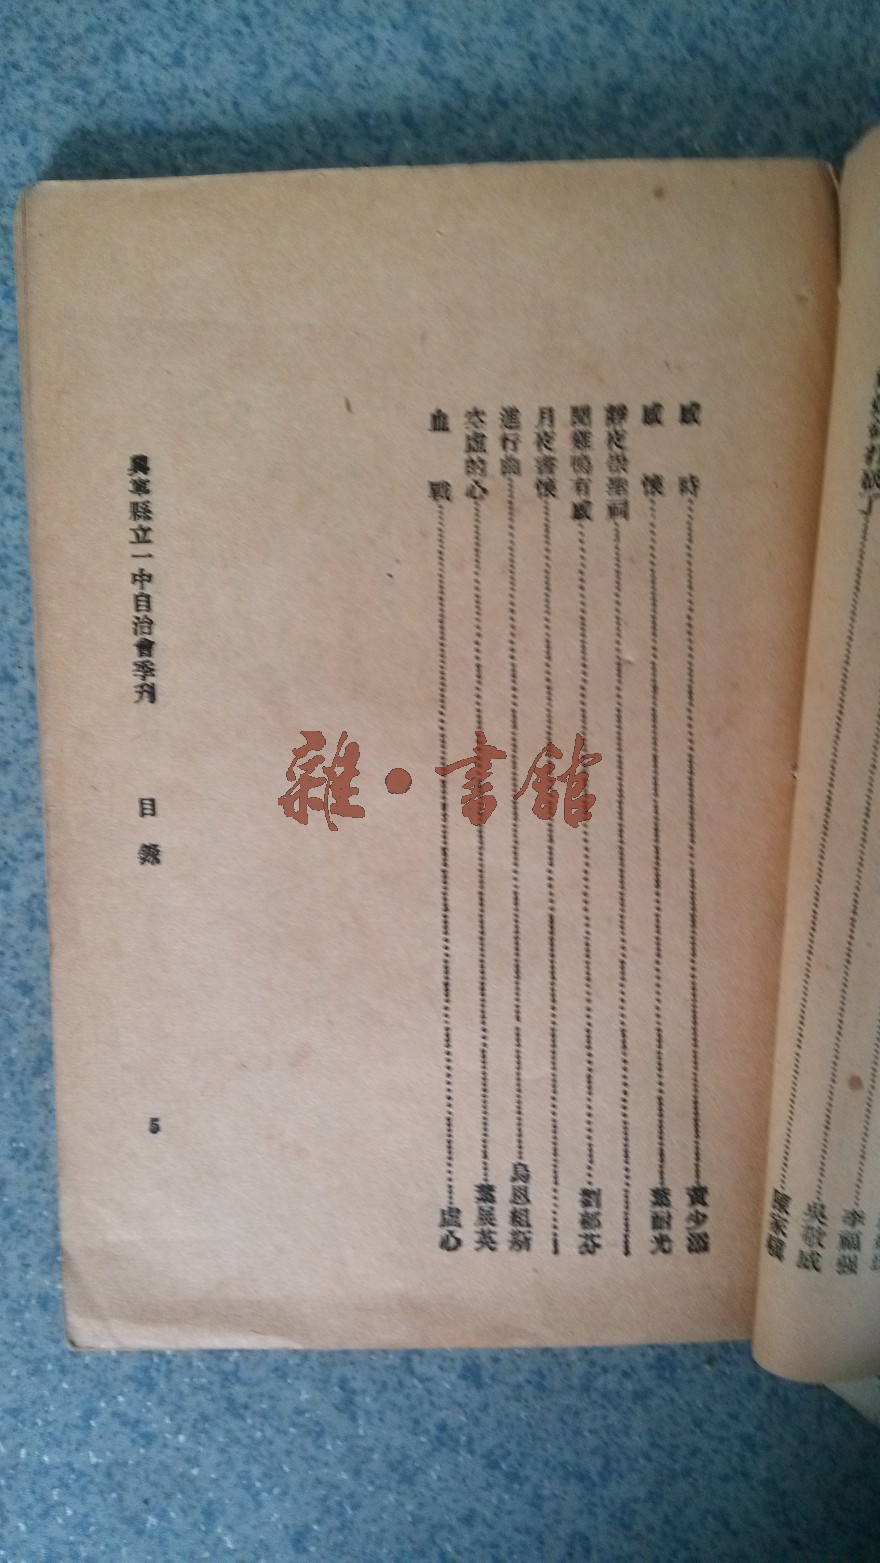 感時……黃少
感懷……葉耐光
靜夜崇聖祠……
聞雞鴨有感……劉郁芬
月夜書懷……
進行曲……烏恩組斯
空虛的心……葉展英
血戰……虛心
興寧縣立一中自治會季刊 目錄 5
李福強
吳敬威
雜·書館